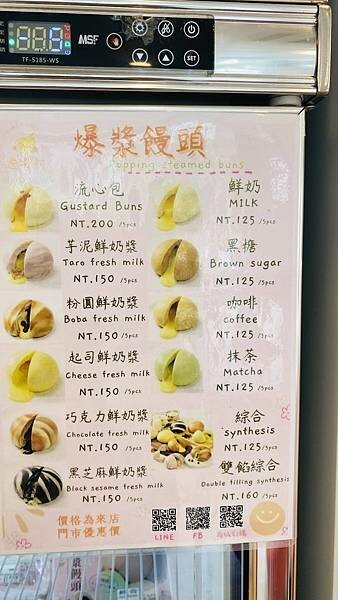 MSF
SET
TF-5185-WS
爆漿饅頭
Popping steamed buns
流心包
Gustard Buns
NT.200 /5pcs
芋泥鮮奶漿
Taro fresh milk
NT.150 /5pcs
粉圓鮮奶漿
Boba fresh milk
NT.150 /5pcs
起司鮮奶漿
Cheese fresh milk
NT.150 /5pcs
巧克力鮮奶漿
Chocolate fresh milk
NT.150 /5pcs
黑芝麻鮮奶漿
Black sesame fresh milk
NT.150 /5pcs
鮮奶
MILK
NT.125 /5pcs
黑糖
Brown sugar
NT.125 /5pcs
咖啡
coffee
NT.125 /5pcs
抹茶
Matcha
NT.125 /5pcs
綜合
synthesis
NT.125/5pcs
雙餡綜合
Double filling synthesis
NT.160 /5pcs
價格為來店
門市優惠價
LINE
FB
漿饅頭